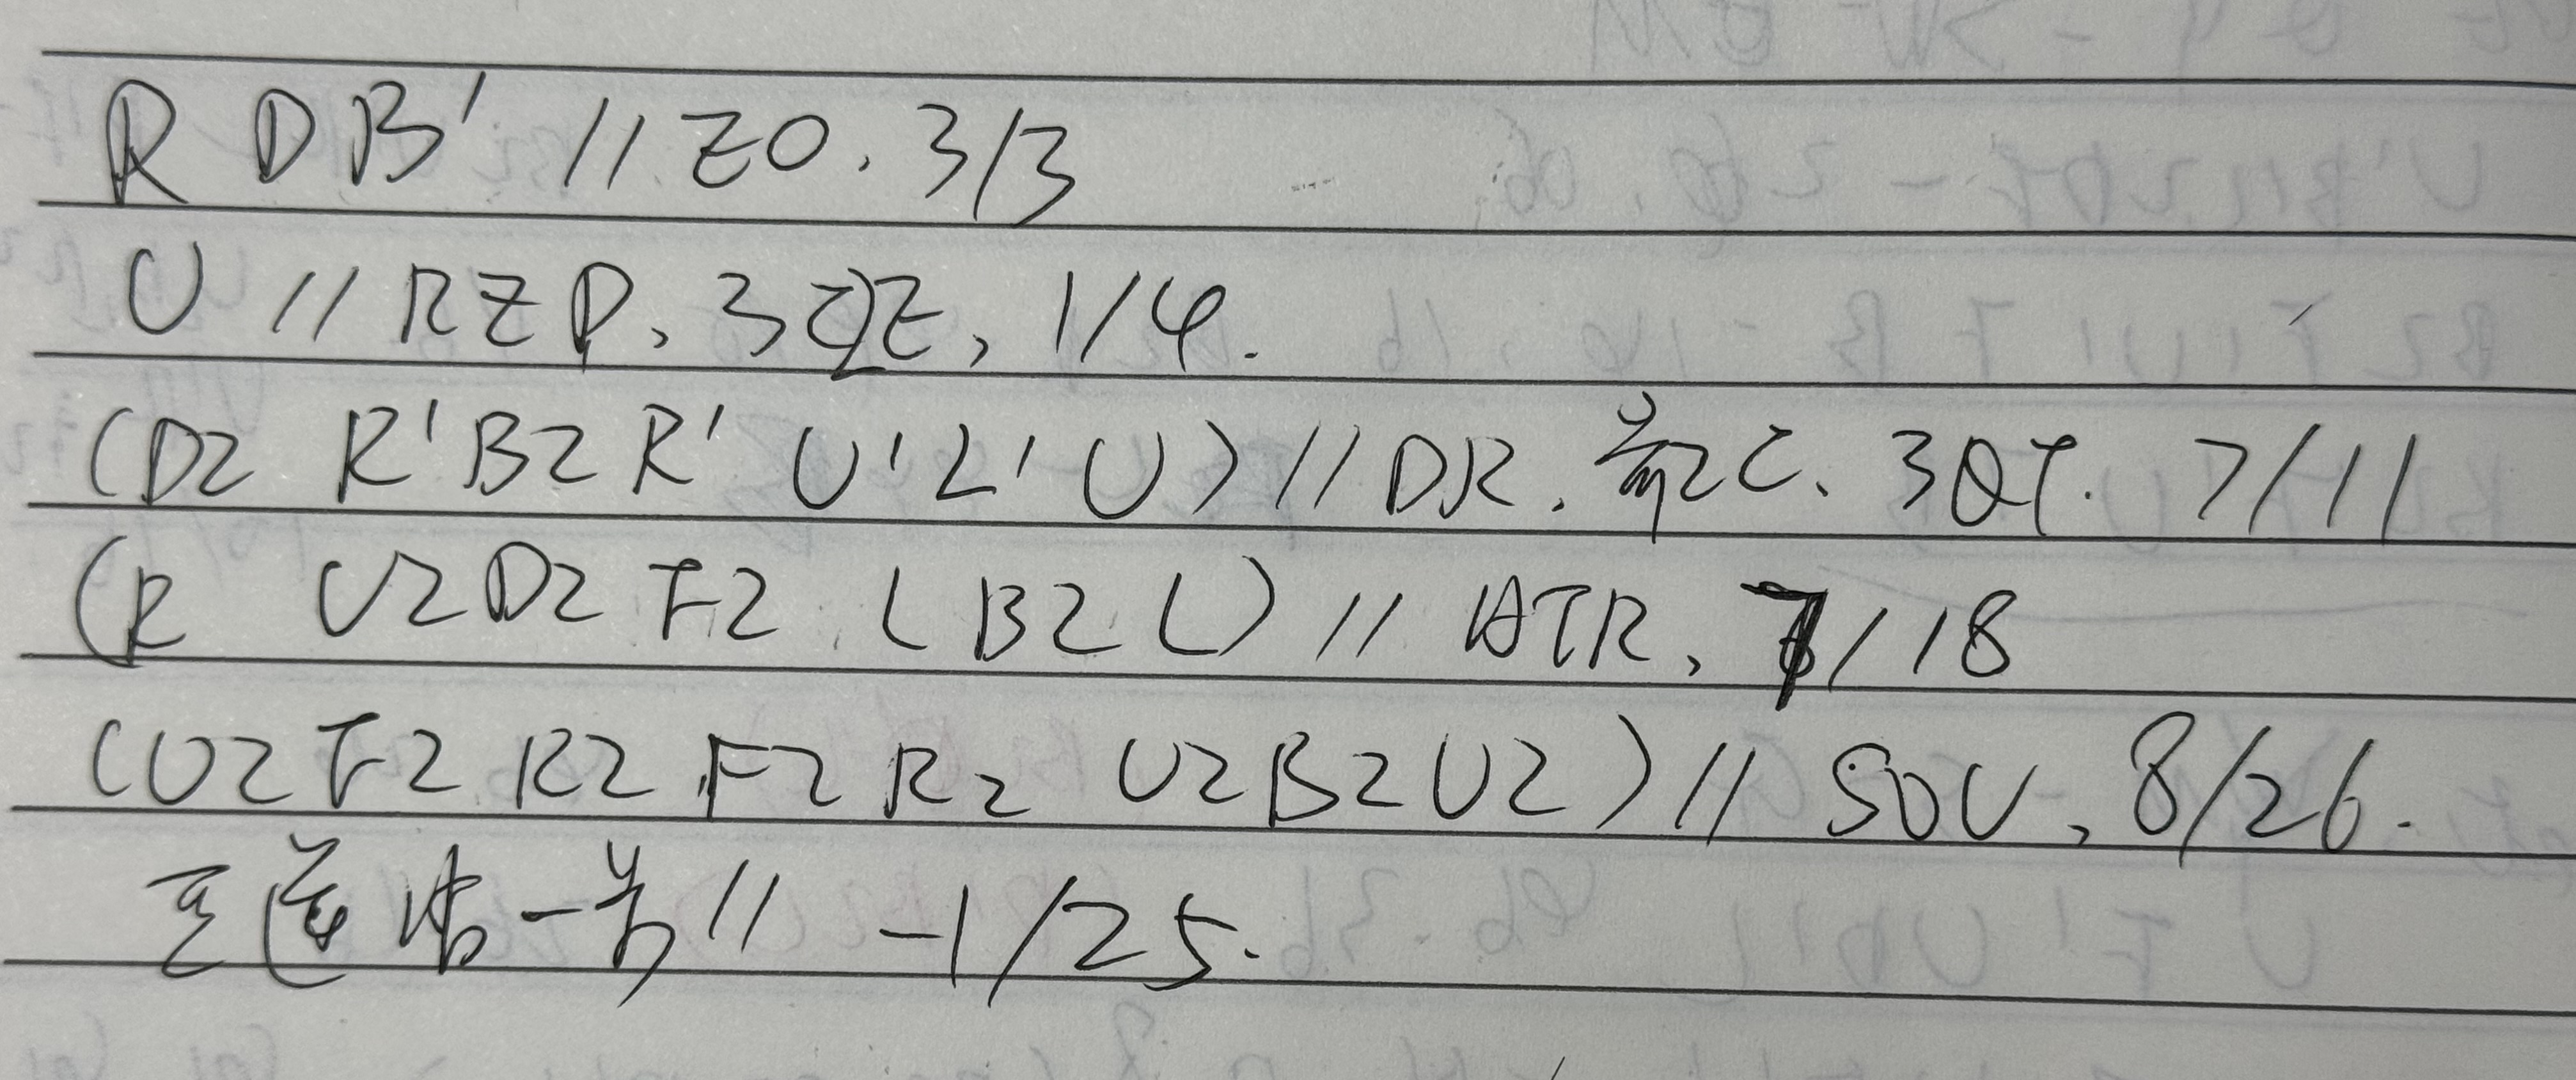 R D B' // EO. 3/3
U // RZP, 3QE, 1/4.
(D2 R' B2 R' U' L' U) // DR. 2C. 3QT. 7/11
(R U2 D2 F2 L B2 L) // HTR, 7/18
(U2 F2 R2 F2 R2 U2 B2 U2) // SOV, 8/26.
一步 // -1/25.